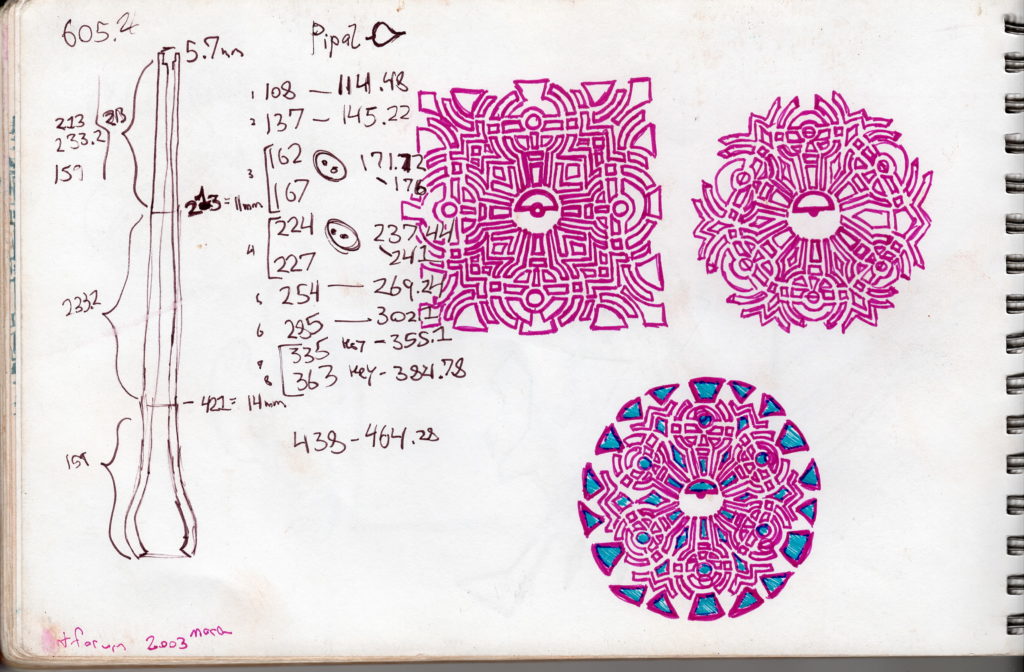 605.2
5.7mm
Pipal
213
233.2
159
213
1 108 — 114.48
2 137 — 145.22
3 162 171.72
167 - 176
213 = 11mm
4 224 237.44
227 - 241
5 254 — 269.24
233.2
6 285 — 302.1
7 335 key - 355.1
8 363 key - 384.78
421 = 14mm
438 - 464.28
159
2003